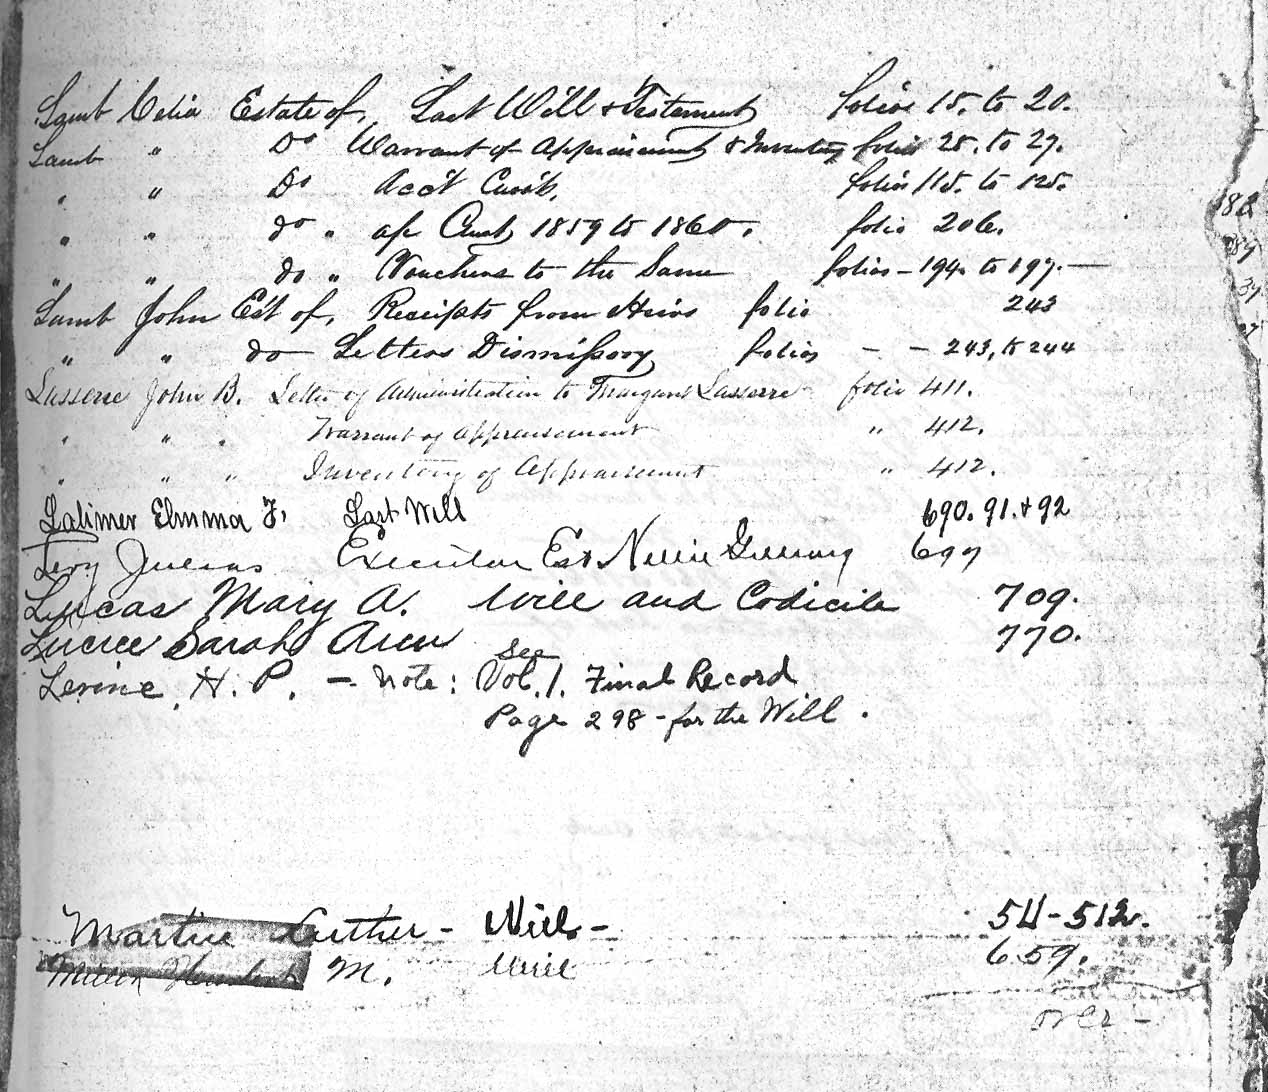 Lamb Celia Estate of, Last Will & Testament folios 15. to 20.
Lamb " Do Warrant of Appraisement & Inventory folios 25. to 27.
" " Do Acc't Curr't. folios 115. to 125.
" " do " a/c Curt 1859 to 1860. folio 206.
" " do " Vouchers to the Same folios - 194. to 197. —
Lamb John Est of, Receipts from Heirs folio 243
" " do Letters Dismissory folios - - 243, to 244
Lasserre John B. Letter of Administration to Margaret Lasserre folio 411.
" " " Warrant of Appraisement " 412.
" " " Inventory of Appraisement " 412.
Latimer Emma F. Last Will 690. 91. & 92
Levy Julius Executor Est Nellie 699
Lucas Mary A. Will and Codicils 709.
Sarah Ann 770.
Levine, H. P. — Note: See Vol. 1. Final Record
Page 298 - for the Will.
Martin Luther - Will - 511-512.
M. Will 659.
over -